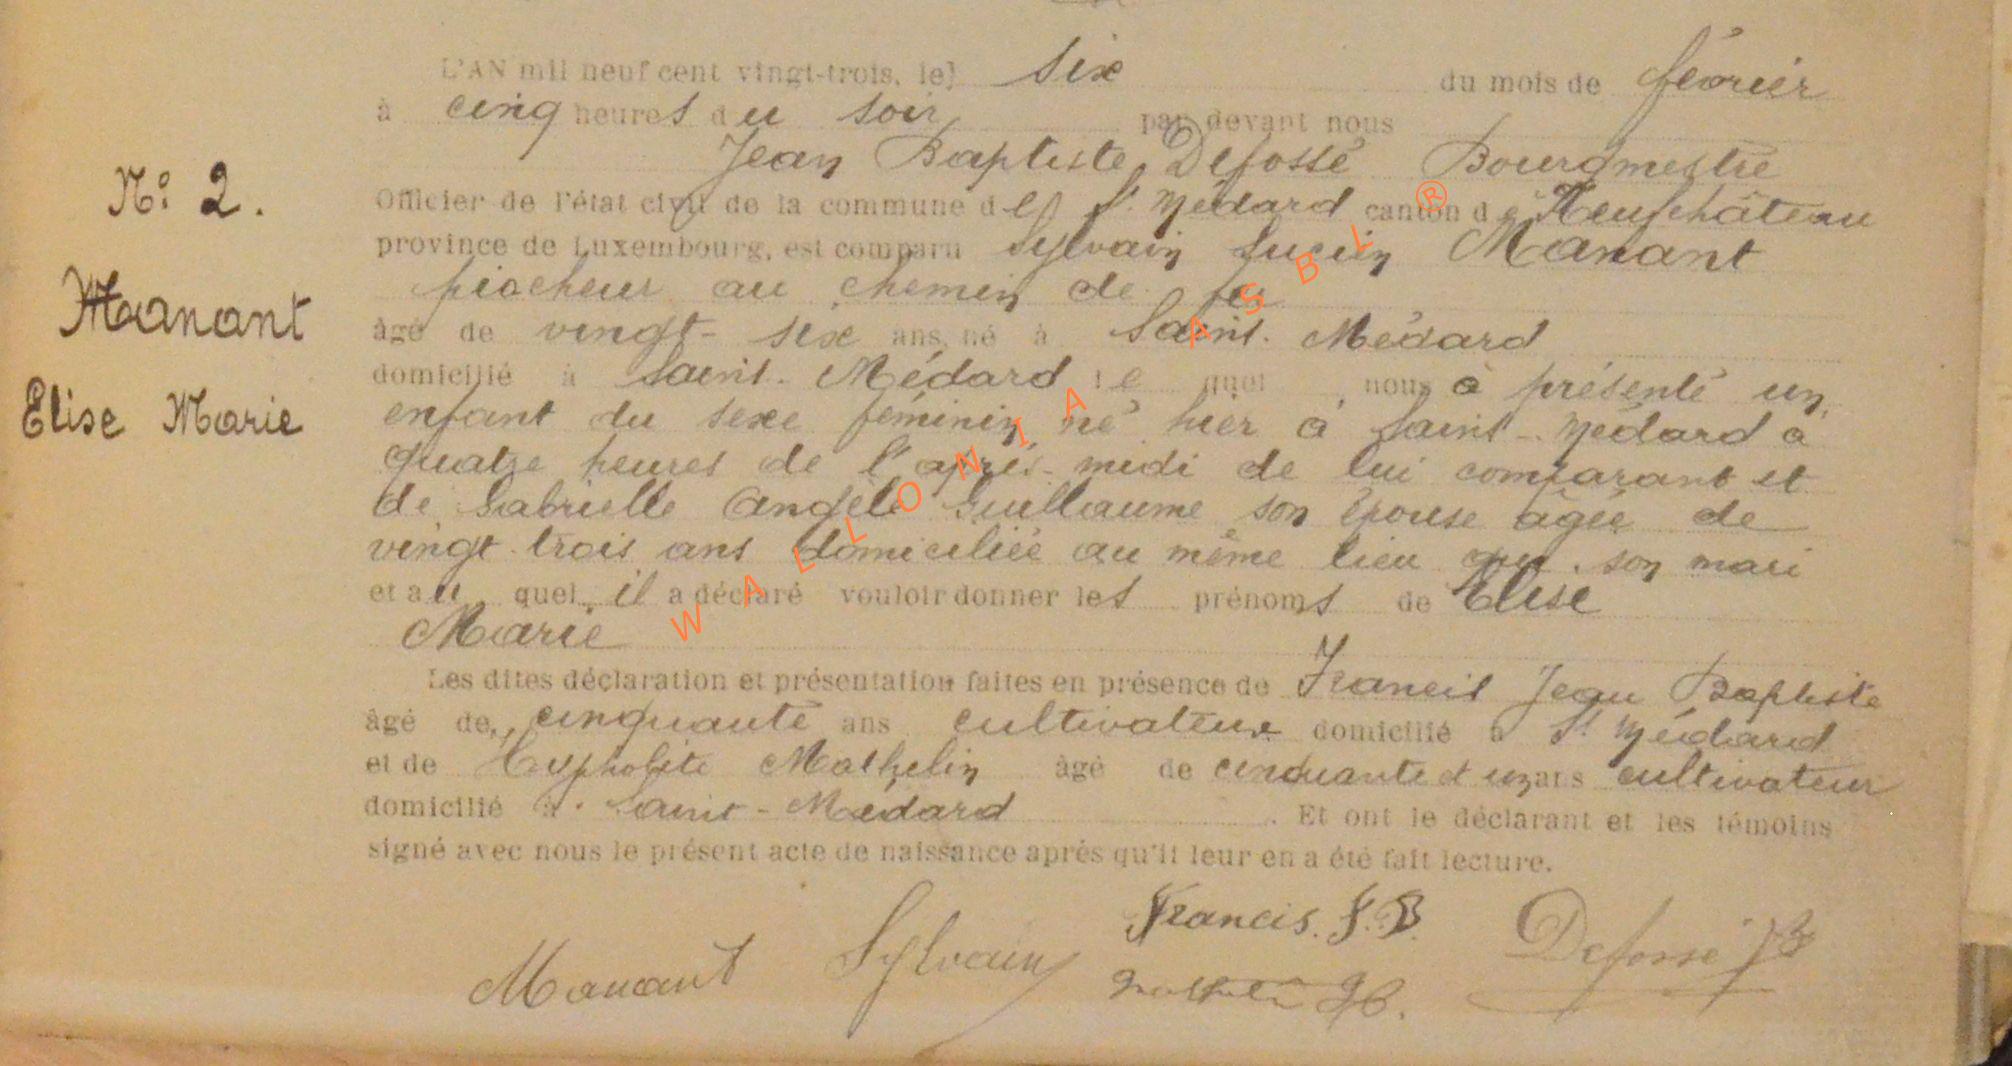 L'AN mil neuf cent vingt-trois, le} six du mois de février
à cinq heures du soir par devant nous
Jean Baptiste Defossé Bourgmestre
N° 2.
Officier de l'état civil de la commune de St Médard canton de Neufchâteau
province de Luxembourg, est comparu Sylvain Lucien Manant
piocheur au chemin de fer
Manant
âgé de vingt-six ans, né à Saint-Médard
domicilié à Saint-Médard lequel nous à présenté un
Elise Marie
enfant du sexe féminin né hier à Saint-Médard à
quatre heures de l'après-midi de lui comparant et
de Gabrielle Angèle Guillaume son épouse âgée de
vingt-trois ans domiciliée au même lieu que son mari
et au quel il a déclaré vouloir donner les prénoms de Elise
Marie
Les dites déclaration et présentation faites en présence de Francis Jean Baptiste
âgé de cinquante ans cultivateur domicilié à St Médard
et de Hypholite Mathelin âgé de cinquante et un ans cultivateur
domicilié à Saint-Médard. Et ont le déclarant et les témoins
signé avec nous le présent acte de naissance après qu'il leur en a été fait lecture.
Francis. J. B.
Manant Sylvain Defossé JB
Mathelin H.
WALLONIA ASBL ®